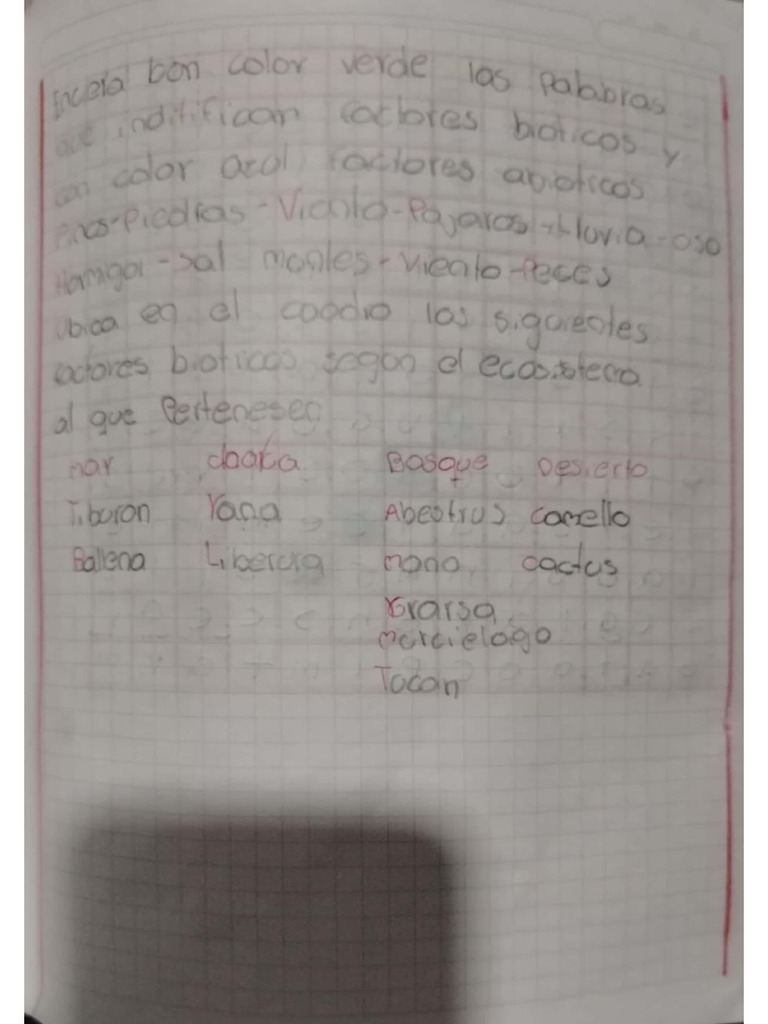 Encera bon color verde las palabras
que inditifican factores bioticos y
con color azul factores abioticos
Pinos-Piedras-Viento-Pajaros-lluvia-oso
Hormigas-sal montes-viento-Peces
Ubica en el coadro los siguientes
factores bioticos segon el ecosistema
al que Pertenesen
mar charca Bosque Desierto
Tiburon rana Abestrus camello
Ballena Libelula mono cactus
Grarsa
morcielogo
Tocan